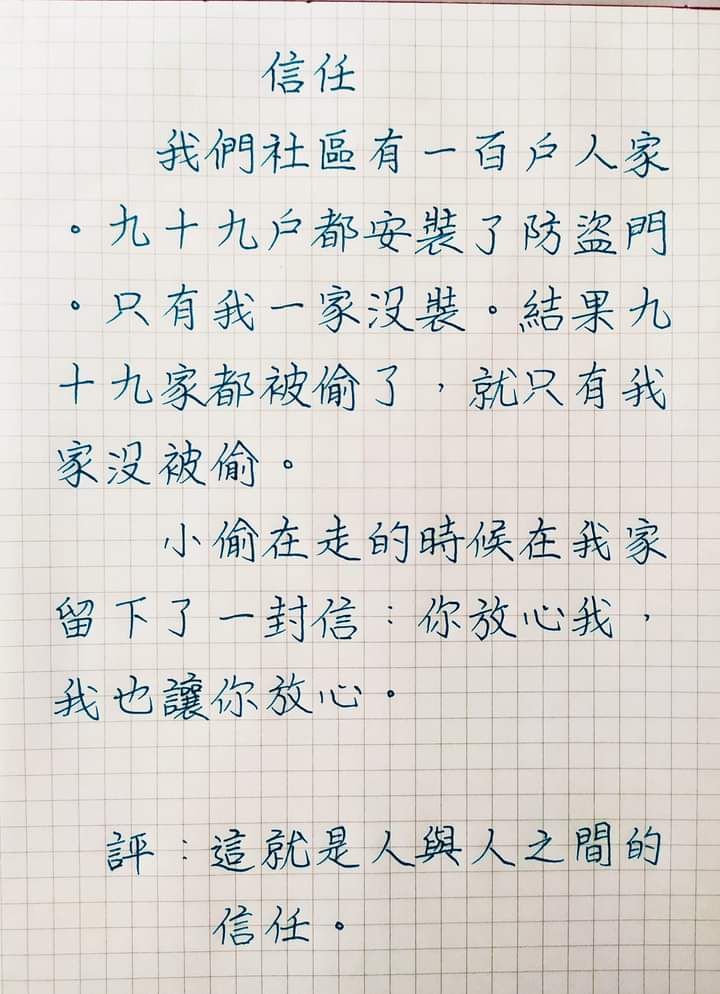 信任
我們社區有一百戶人家
。九十九戶都安裝了防盜門
。只有我一家沒裝。結果九
十九家都被偷了，就只有我
家沒被偷。
小偷在走的時候在我家
留下了一封信：你放心我，
我也讓你放心。
評：這就是人與人之間的
信任。